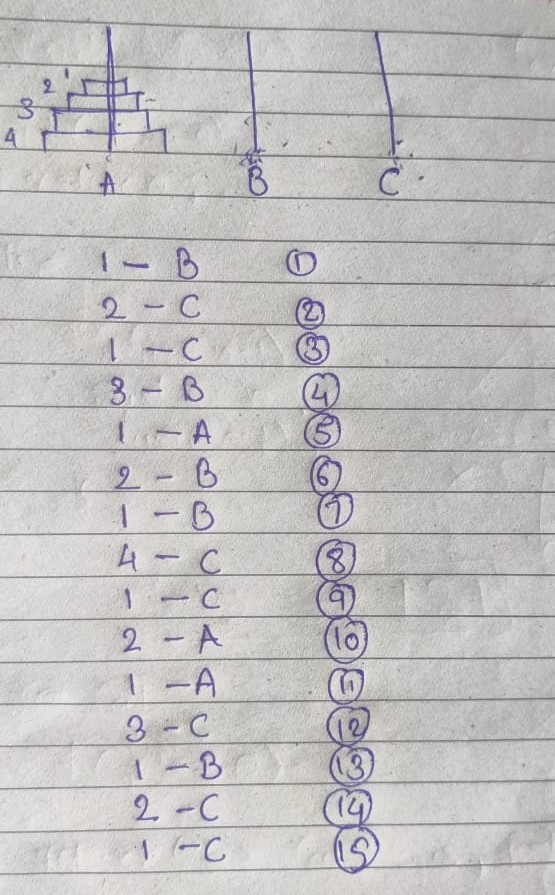 1
2
3
4
A B C
1 - B ①
2 - C ②
1 - C ③
3 - B ④
1 - A ⑤
2 - B ⑥
1 - B ⑦
4 - C ⑧
1 - C ⑨
2 - A ⑩
1 - A ⑪
3 - C ⑫
1 - B ⑬
2 - C ⑭
1 - C ⑮